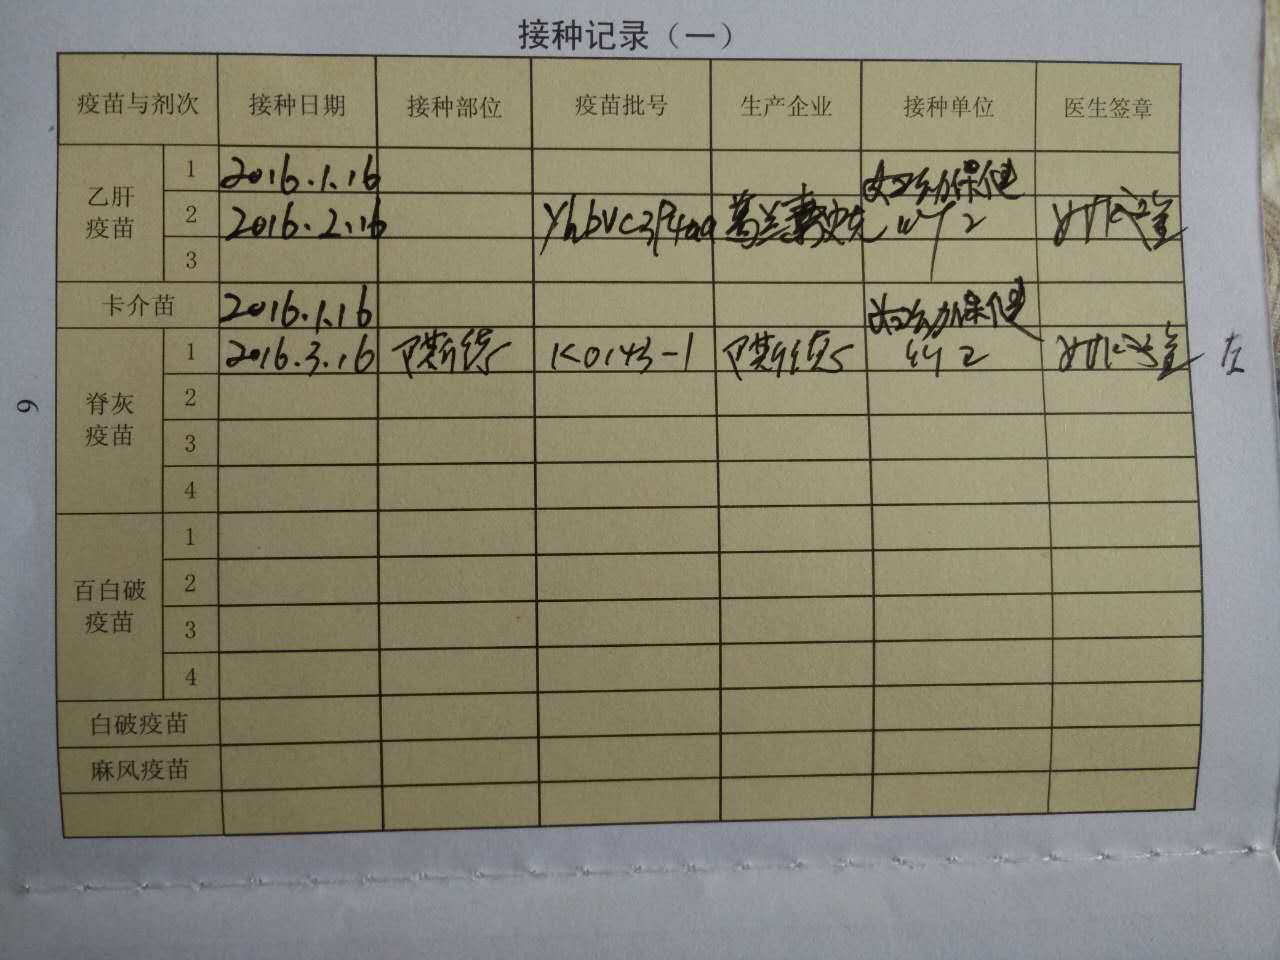 接种记录（一）
疫苗与剂次 接种日期 接种部位 疫苗批号 生产企业 接种单位 医生签章
乙肝疫苗
1 2016.1.16 妇幼保健
2 2016.2.16 葛兰素史克
3
卡介苗 2016.1.16 妇幼保健
脊灰疫苗
1 2016.3.16 K0143-1 左
2
3
4
百白破疫苗
1
2
3
4
白破疫苗
麻风疫苗
9